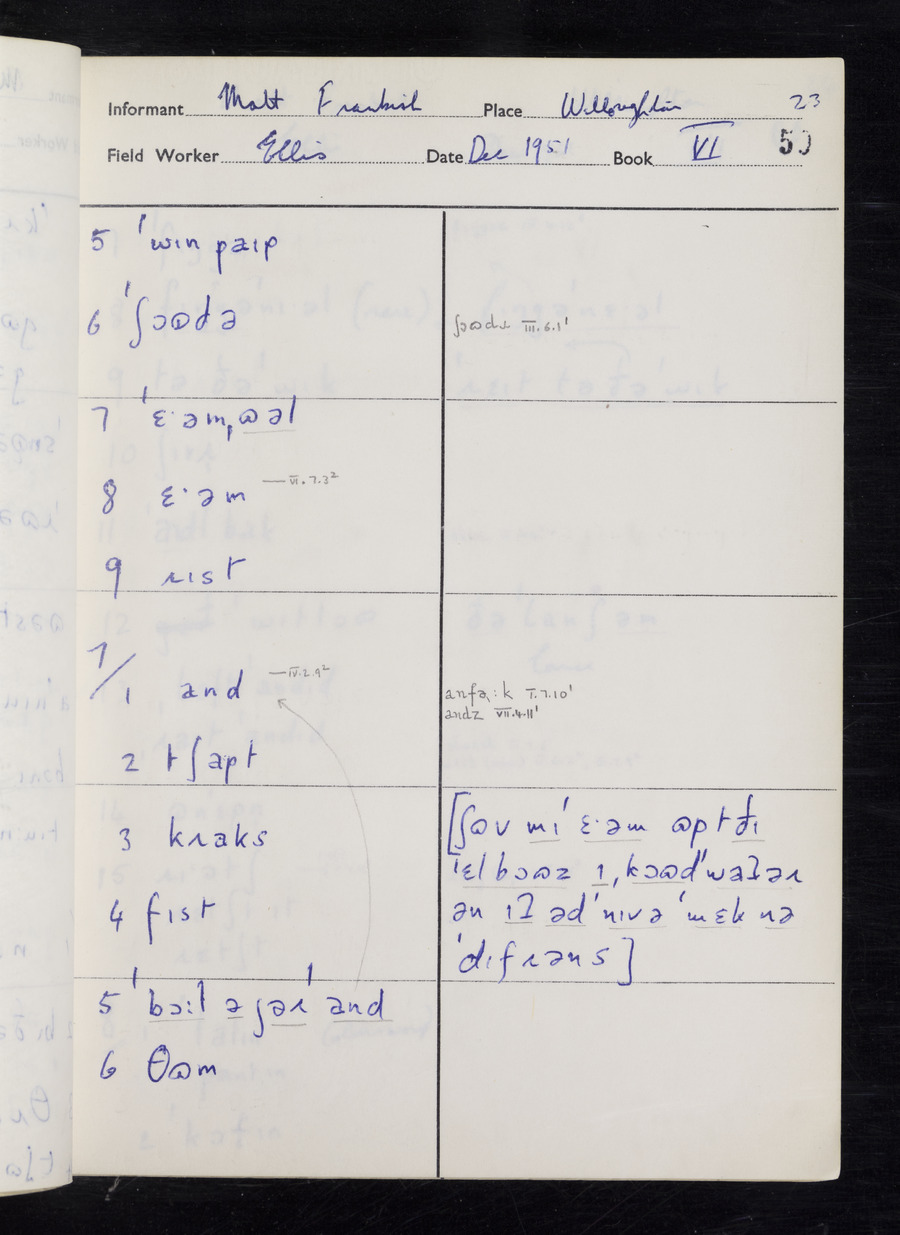 Informant Matt Frankish Place Willoughton 23
Field Worker Ellis Date Dec 1951 Book VI 50
5 ˈwɪn paɪp
6 ˈʃɔʊdə
ʃɔʊdɹ III.6.1¹
7 ˈɛˑəmˌʊəl
8 ɛˑəm — VI.7.3²
9 ɹɪst
7/1 and — IV.2.9²
anfə˛ːk I.7.10¹
andz VII.4.11¹
2 tʃapt
3 kɹaks
4 fɪst
[ʃʊv mɪˈ ɛˑəm ʊp tðɪ
ˈɛlbɔʊz ɪˌkɔʊdˈwaʔəɹ
ən ɪʔ ədˈnɪvə ˈmɛk nə
ˈdɪfɹəns]
5 ˈbɔːɫ ə jəɹˈand
6 θʊm